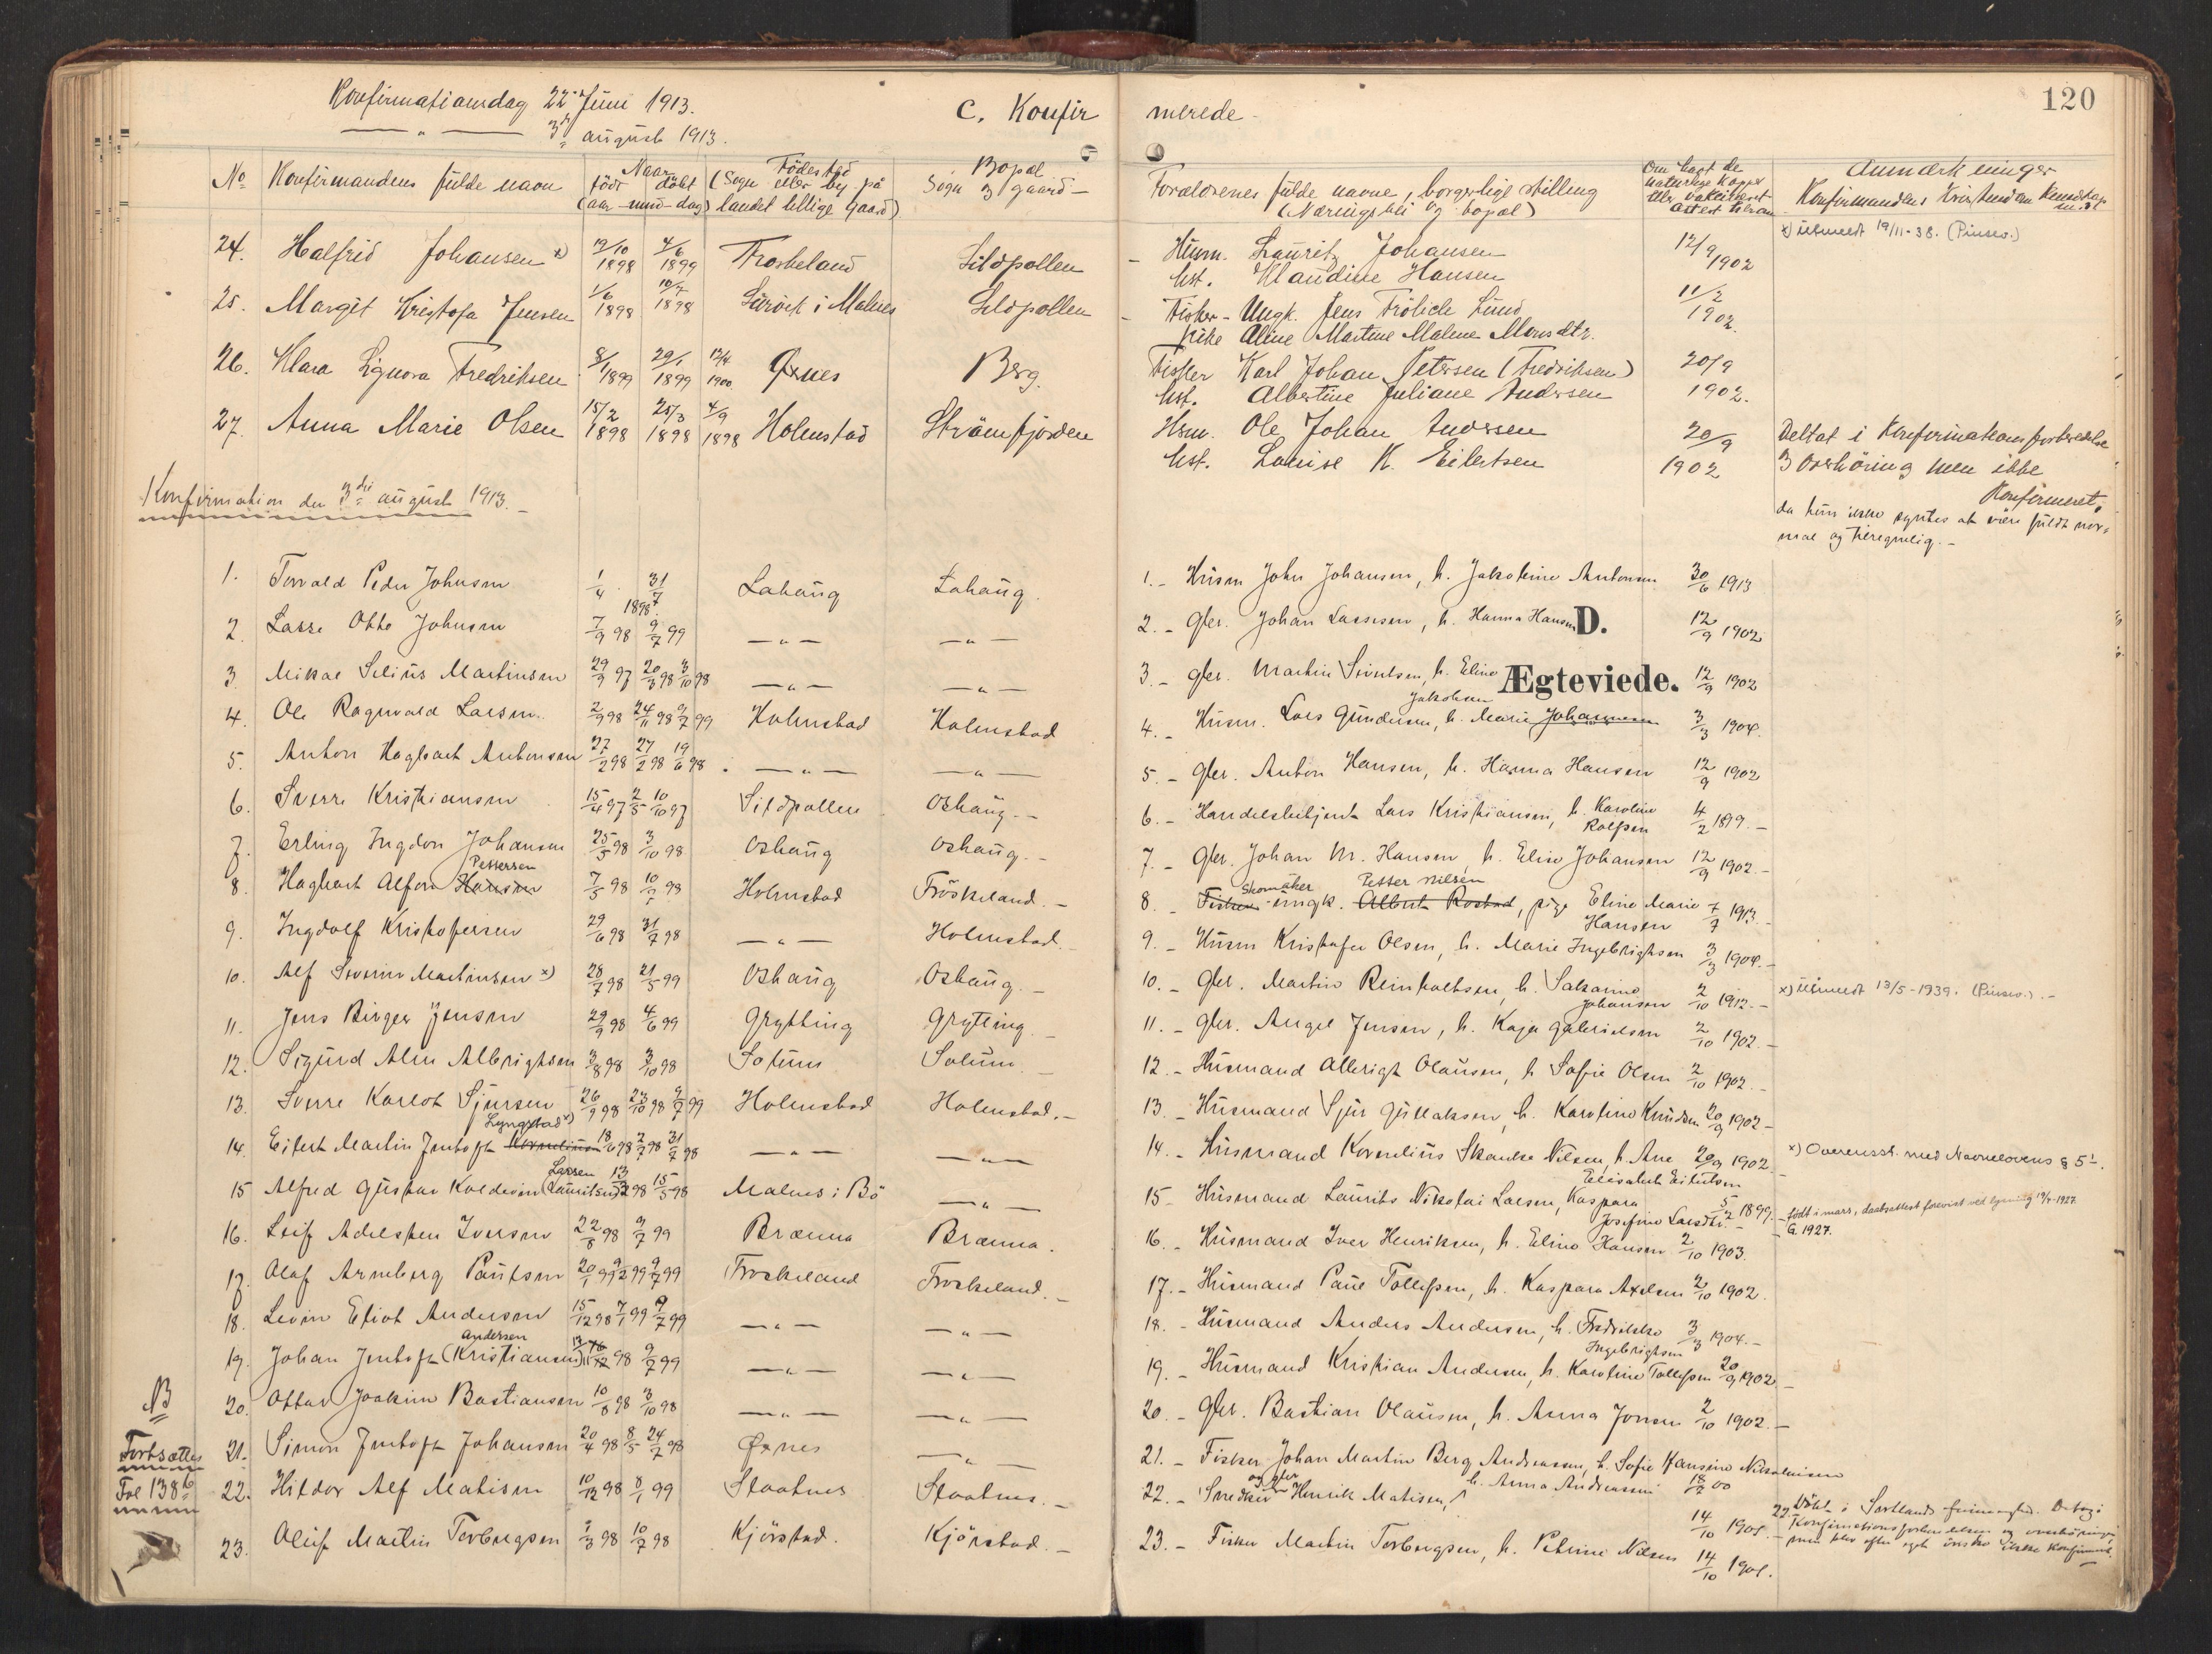 Konfirmationsdag 22. Juni 1913.
— " — 3die august 1913.
C. Konfirmerede
120
No Konfirmandens fulde navn Naar født døbt (aar - mnd - dag) Fødested (Sogn eller by, på landet tillige Gaard) Bopæl Sogn og gaard -
Forældrenes fulde navne, borgerlige stilling (Næringsvei og bopæl)
Om havt de naturlige Kopper eller vakcineret attest
Anmærkninger Konfirmandens Kristendoms Kundskap
24. Halfrid Johansen x) 19/10 1898 4/6 1899 Froskeland Sildpollen Husm. Lauritz Johansen 12/9 1902 x) utmeldt 19/11-38. (Pinsev.)
hst. Klaudine Hansen
25. Margit Kristofa Jensen 1/6 1898 10/7 1898 i Malnes Sildpollen Fisker - Ungk. Jens Frölich Lund 11/2 1902.
pike Aline Martine Malene Monsdtr.
26. Klara Signora Fredriksen 8/1 1899 29/1 1899 12/4 1900 Öxnes Berg. Fisker Karl Johan Petersen (Fredriksen) 20/9 1902.
hst. Albertine Juliane Andersen
27. Anna Marie Olsen 15/2 1898 25/3 1898 4/9 1898 Holmstad Strömfjorden Hsm. Ole Johan Andersen 20/9 1902 Deltat i Konfirmationsforberedelse
hst. Louise K. Eilertsen og overhöring men ikke
Konfirmeret,
da hun ikke syntes at være fuldt nor-
mal og tilregnelig. -
Konfirmation den 3die august 1913. -
1. Torvald Peder Johnsen 1/4 31/7 1898. Lahaug Lahaug. 1. - Husm John Johansen, h. Jakobine Antonsen 30/6 1913
2. Lasse Otto Johnsen 7/9 98 9/7 99 — " — — " — 2. - Gbr. Johan Lassesen, h. Hanna Hansen 12/9 1902
D.
3. Mikal Selius Martinsen 29/9 97 20/3 98 3/10 98 — " — — " — 3. - Gbr. Martin Sivertsen, h. Eline Jakobsen 12/9 1902
Ægteviede.
4. Ole Ragnvald Larsen 2/9 98 24/11 98 9/7 99 Holmstad Holmstad 4. - Husm. Lars Gundersen, h. Marie Johannesen 3/3 1904.
5. Anton Hagbart Antonsen 27/2 98 27/2 98 19/6 98 — " — — " — 5. - Gbr. Anton Hansen, h. Hanna Hansen 12/9 1902
6. Sverre Kristiansen 15/4 97 2/5 10/10 97 Sildpollen Oshaug. - 6. - Handelsbetjent Lars Kristiansen, h. Karoline Rolfsen 4/2 1899. -
7. Erling Ingdor Johansen 25/5 98 3/10 98 Oshaug Oshaug. - 7. - Gbr. Johan M. Hansen, h. Elise Johansen 12/9 1902. -
8. Hagbart Alfon Hansen Pettersen 7/5 98 10/7 98 Holmstad Fröskeland. - 8. - Fisker Skomaker ungk. Albert Rostad Petter Nilsen, pige Eline Marie Hansen 7/7 1913. -
9. Ingdolf Kristofersen 29/6 98 31/7 98 — " — Holmstad. 9. - Husm Kristofer Olsen, h. Marie Ingebrigtsen 3/3 1904. -
10. Alf Severin Martinsen x) 28/7 98 21/5 99 Oshaug Oshaug. - 10. - Gbr. Martin Reinholtsen, h. Johansen 2/10 1912. - x) Utmeldt 13/5-1939. (Pinsev.). -
11. Jens Birger Jensen 29/9 98 4/6 99 Grytting Grytting. 11. - Gbr. Angel Jensen, h. Kaja Gabrielsen 2/10 1902. -
12. Sigurd Alm Albrigtsen 3/8 98 3/10 98 Solum. - 12. - Husmand Albrigt Olausen, h Sofie Olsen 2/10 1902. -
13. Sverre Karlot Sjursen 26/9 98 23/10 98 9/7 99 Holmstad Holmstad. - 13. - Husmand Sjur Gullaksen, h. Karoline Knudsen 20/9 1902 -
14. Eilert Martin Jentoft Korneliusen Lyngstad x) 18/6 98 2/7 98 31/7 98 — " — — " — 14. - Husmand Kornelius Skanke Nilsen, h. Ane Elisabet Eilertsen 20/9 1902 x) Overensst. med Navnelovens § 5 1.
15 Alfred Gustav Koldevin (Lauritsen) Larsen 13/3 98 15/5 98 Malnes i Bö — " — 15 - Husmand Laurits Nikolai Larsen, Kaspara Josefine Larsdtr. - 5/2 1899. - født i mars, daabsattest forevist ved lysning 19/4-1927.
16. Leif Adelsten Iversen 22/8 98 9/7 99 Brenna Brenna. 16. - Husmand Iver Henriksen, h. Eline Hansen 2/10 1903.
17. Olaf Arneberg Paulsen 20/1 99 9/2 99 9/7 99 Froskeland Froskeland. - 17. - Husmand Paul Tollefsen, h. Kaspara Axelsen 2/10 1902.
18. Levin Eliot Andersen 15/12 98 7/1 99 9/7 99 — " — — " — 18. - Husmand Anders Andersen, h. Fredrikke Ingebrigtsen 3/3 1904. -
19. Johan Jentoft (Kristiansen) Andersen 98 9/7 99 — " — — " — 19. - Husmand Kristian Andersen, h. Karoline Tollefsen 20/9 1902 -
NB
20. Ottar Joakim Bastiansen 10/8 98 3/10 98 — " — — " — 20. - Gbr. Bastian Olausen, h. Anna Jonsen 2/10 1902. -
Fortsættes
Fol 138 b
21. Simon Jentoft Johansen 20/4 98 8/5 24/7 98 Öxnes — " — 21. - Fisker Johan Martin Berg Andreassen, h. Sofie Hansine Nikolaisen 18/7 00
22. Hildor Alf Matisen 10/12 98 8/1 99 Slaatnes Slaatnes. - 22. - Snedker og gbr Henrik Matisen, h. Anna Andreassen 14/10 1901. - 22. Døbt i Sortlands frimenighed. Deltog i
Konfirmationsforberedelsen og overhøringen,
men blev efter eget ønske ikke konfirmert.
23. Oluf Martin Torbergsen 1/3 98 10/7 98 Kjörstad. Kjörstad. - 23. - Fisker Martin Torbergsen, h. Petrine Nilsen 14/10 1901.